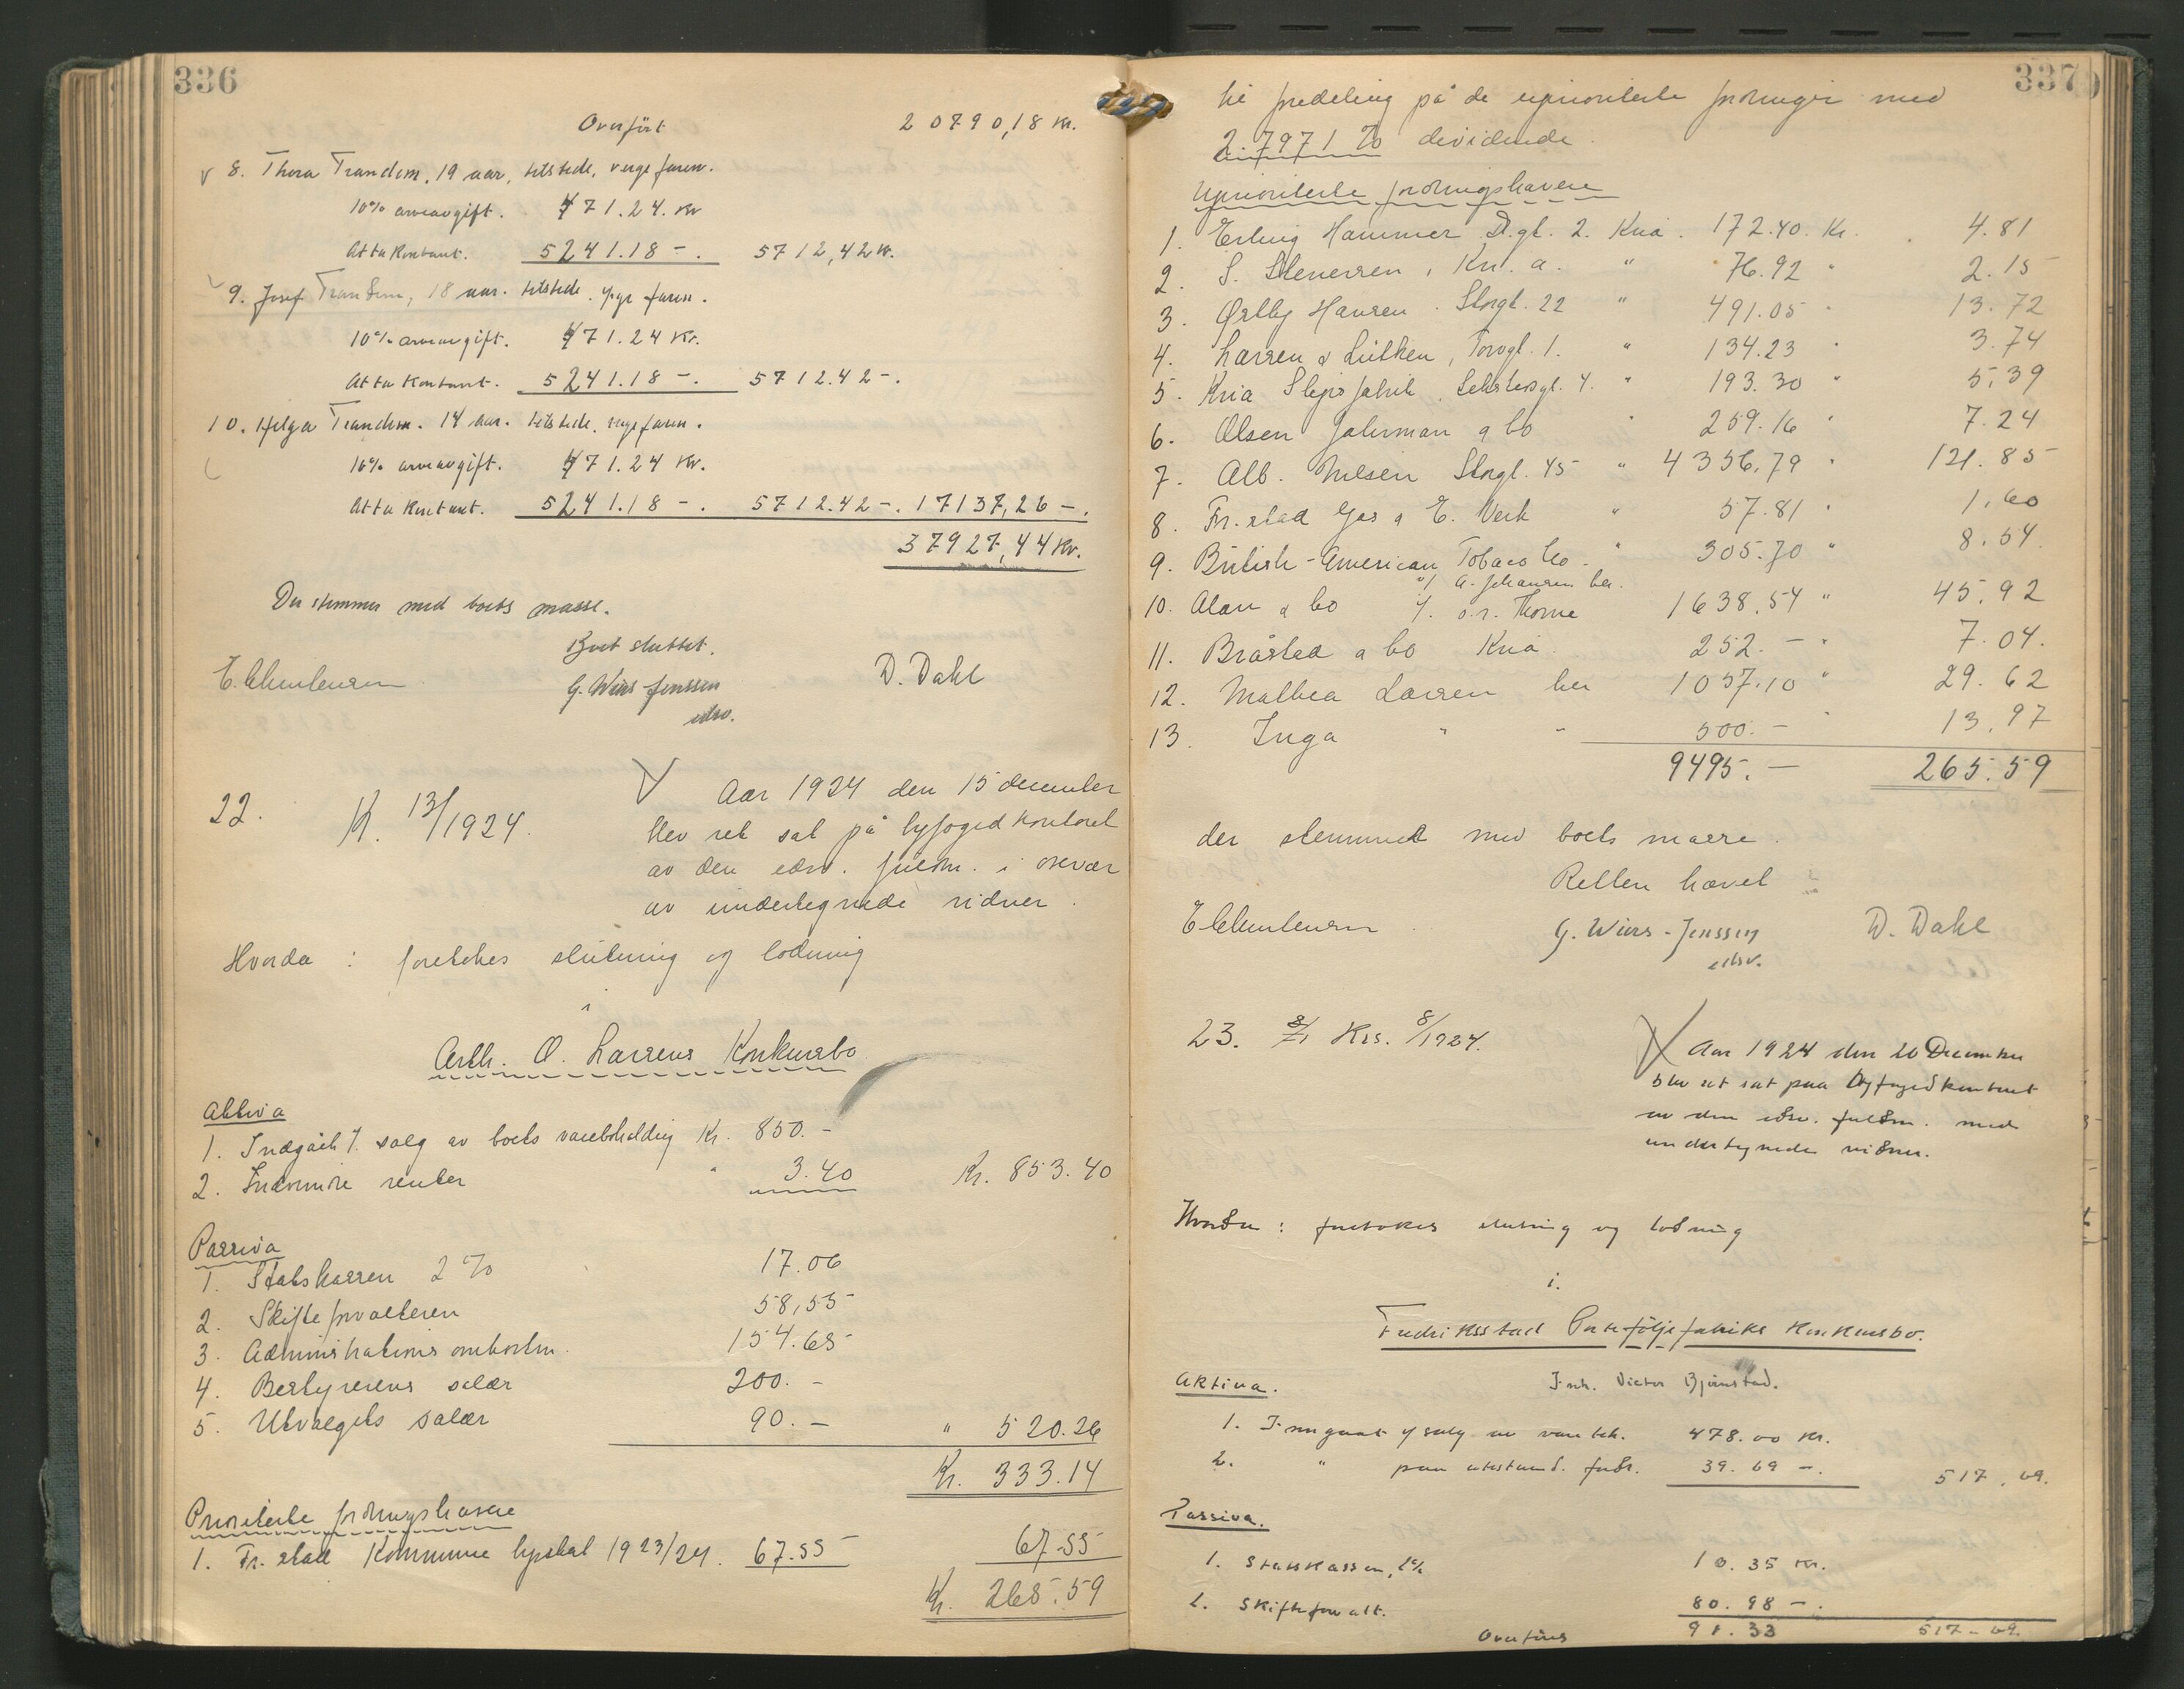 336
Overført 20790,18 Kr.
8. Thora Trandem, 19 aar, tilstede, verge faren.
10% arveavgift. 471.24. Kr
At ta kontant. 5241.18 -. 5712,42 Kr.
9. Josef Trandem, 18 aar. tilstede. verge faren.
10% arveavgift. 471.24 Kr.
At ta kontant. 5241.18 -. 5712.42 -.
10. Helga Trandem. 14 aar. tilstede. verge faren.
10% arveavgift. 471.24 Kr.
At ta kontant. 5241.18 -. 5712.42 -. 17137,26 -.
37927,44 Kr.
Der stemmer med boets masse.
Boet sluttet.
G. Wiers-Jenssen D. Dahl
edsv.
22. K. 13/1924.
Aar 1924 den 15 december
blev ret sat på byfogedkontoret
av den edsv. fuldm. i overvær
av undertegnede vidner.
Hvorda : foretokes slutning og lodning
i
Arth. O. Larsens Konkursbo
Aktiva
1. Indgåt f. salg av boets varebeholdning Kr. 850.-
2. Indvundne renter " 3.40 Kr. 853.40
Passiva
1. Statskassen 2% 17.06
2. Skifteforvalteren 58,55
3. Administrations omkostn. 154.65
4. Bestyrerens salær 200.-
5. Utvalgets salær 90.- " 520.26
Kr. 333.14
Prioriterte fordringshavere
1. Fr.stad Kommune byskat 1923/24. 67.55 67.55
Kr. 265.59
337
til fordeling på de uprioriterte fordringer med
2.7971 % dividende.
Uprioriterte fordringshavere
1. Erling Hammer D.gt. 2. Kria. 172.40. Kr. 4.81
2. S. Stenersen, Kr.a. " 76.92 " 2.15
3. Ørtby Hansen. Storgt. 22 " 491.05 " 13.72
4. Larsen & Lütken, Torvgt. 1. " 134.23 " 3.74
5. Kria Slipsfabrik. gt. 4. " 193.30 " 5.39
6. Olsen & Co " 259.16 " 7.24
7. Alb. Nilsen Storgt. 45 " 4356,79 " 121.85
8. Fr.stad Gas & E. Verk " 57.81 " 1.60
9. British-American Tobaco Co. " 305.70 " 8.54
v/ A. Johansen her.
10. Alan & Co f. o.r. Thorne 1638.54 " 45.92
11. Bråstad & Co Kria 252.- " 7.04.
12. Mathea Larsen her 1057.10 " 29.62
13. Inga " " 500.- " 13.97
9495.- 265.59
der stemmet med boets masse.
Retten hævet
G. Wiers-Jenssen D. Dahl
edsv.
23. Krs. 8/1924.
Aar 1924 den 20 December
blev ret sat paa Byfogedkontoret
av den edsv. fuldm. med
undertegnede vidner.
Hvorda : foretokes slutning og lodning
i.
Fredriksstad Porteføljefabriks Konkursbo.
Inh. Victor Bjørnstad.
Aktiva.
1. Inngaat f salg av varebeh. 478.00 Kr.
2. " paa utestaaend. fordr. 39.69 -. 517.69.
Passiva.
1. Statskassen, 2% 10.35 Kr.
2. Skifteforvalt. 80.98 -.
Overføres 91.33 517-69